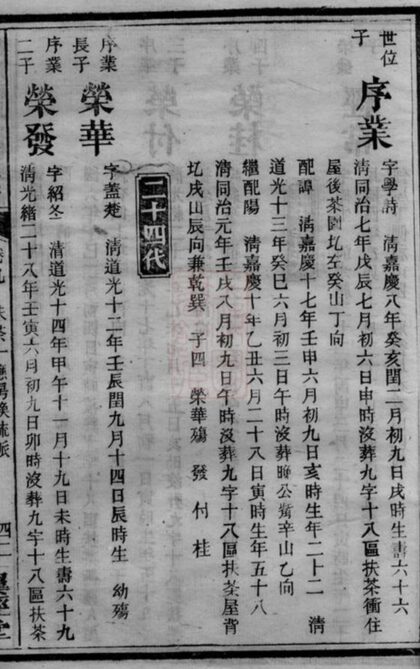 世位
子
序業
字學詩 清嘉慶八年癸亥閏二月初九日戌時生壽六十六
清同治七年戊辰七月初六日申時沒葬九字十八區扶茶衝住
屋後茶園圠左癸山丁向
配譚 清嘉慶十七年壬申六月初九日亥時生年二十二 清
道光十三年癸巳六月初三日午時沒葬 公嘴辛山乙向
繼配陽 清嘉慶十年乙丑六月二十八日寅時生年五十八
清同治元年壬戌八月初九日午時沒葬九字十八區扶茶屋背
圠戌山辰向兼乾巽 子四 榮華殤 發 付 桂
二十四代
序業
長子
榮華
字蓋楚 清道光十二年壬辰閏九月十四日辰時生 幼殤
序業
二子
榮發
字紹冬 清道光十四年甲午十一月十九日未時生壽六十九
清光緒二十八年壬寅六月初九日卯時沒葬九字十八區扶茶